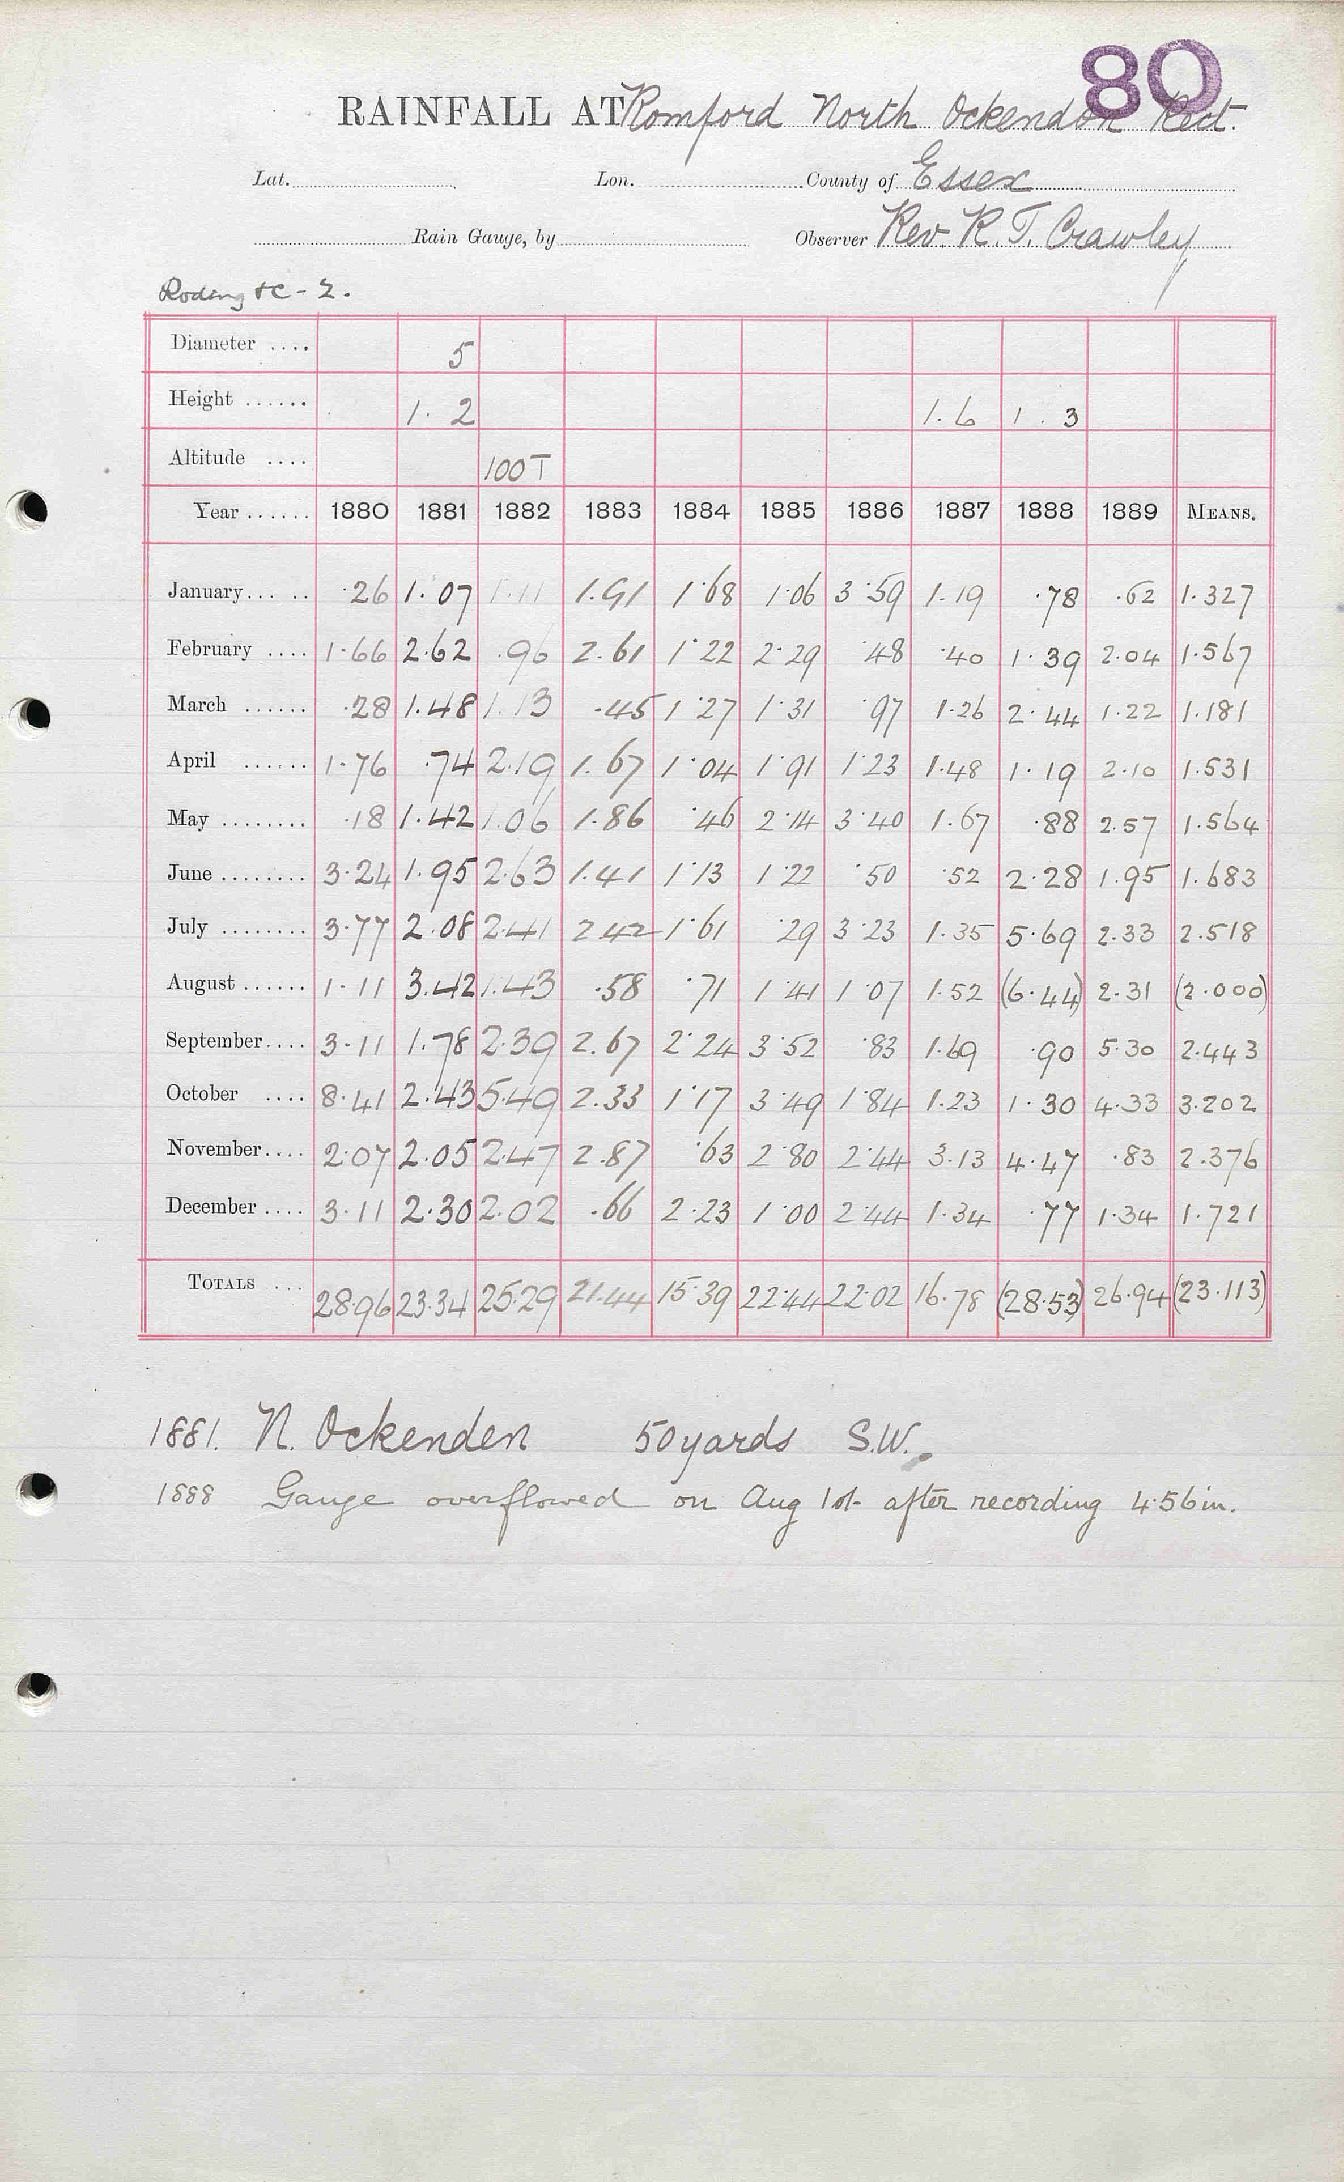 80
RAINFALL AT Romford North Ockendon Rect.
Lat. Lon. County of Essex
Rain Gauge, by Observer Rev. R. T. Crawley
Roding &c - 2.
Diameter .... 5
Height ...... 1. 2 1.6 1. 3
Altitude .... 100T
Year ...... 1880 1881 1882 1883 1884 1885 1886 1887 1888 1889 MEANS.
January ..... ·26 1.07 1.11 1.91 1·68 1·06 3·59 1.19 ·78 ·62 1.327
February .... 1·66 2.62 .96 2.61 1·22 2·29 ·48 ·40 1·39 2.04 1.567
March ...... ·28 1.48 1.13 ·45 1·27 1·31 ·97 1·26 2·44 1·22 1.181
April ...... 1·76 ·74 2.19 1.67 1·04 1·91 1·23 1.48 1·19 2·10 1.531
May ........ ·18 1.42 1.06 1.86 ·46 2·14 3·40 1.67 ·88 2.57 1.564
June ........ 3·24 1.95 2.63 1.41 1·13 1·22 ·50 ·52 2·28 1.95 1.683
July ........ 3·77 2.08 2.41 2.42 1·61 ·29 3·23 1.35 5·69 2.33 2.518
August ...... 1·11 3.42 1.43 ·58 ·71 1·41 1·07 1.52 (6·44) 2·31 (2.000)
September.... 3·11 1.78 2.39 2.67 2·24 3·52 ·83 1.69 ·90 5·30 2.443
October .... 8·41 2.43 5.49 2.33 1·17 3·49 1·84 1.23 1·30 4·33 3.202
November.... 2·07 2.05 2.47 2.87 ·63 2·80 2·44 3.13 4·47 ·83 2.376
December .... 3·11 2.30 2.02 .66 2·23 1·00 2·44 1.34 ·77 1·34 1.721
TOTALS ... 28·96 23.34 25.29 21.44 15·39 22·44 22·02 16.78 (28·53) 26.94 (23.113)
1881. N. Ockenden 50 yards S.W.
1888 Gauge overflowed on Aug 1st after recording 4·56 in.